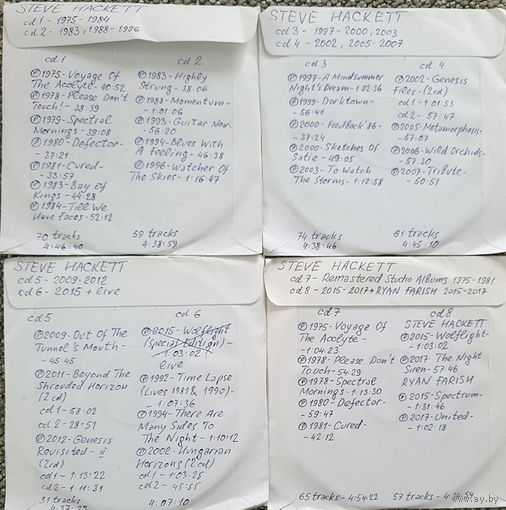 STEVE HACKETT
cd 1 - 1975 - 1984
cd 2 - 1983, 1988 - 1996
cd 1
℗1975 - Voyage Of
The Acolyte - 40:52
℗1978 - Please Don't
Touch! - 38:39
℗1979 - Spectral
Mornings - 39:08
℗1980 - Defector -
37:21
℗1981 - Cured -
33:57
℗1983 - Bay Of
Kings - 44:28
℗1984 - Till We
Have Faces - 52:12
70 tracks
4:46:40
cd 2
℗1983 - Highly
Strung - 38:06
℗1988 - Momentum -
- 1:01:06
℗1993 - Guitar Noir -
56:20
℗1994 - Blues With
A Feeling - 46:38
℗1996 - Watcher Of
The Skies - 1:16:47
59 tracks
4:38:59
STEVE HACKETT
cd 3 - 1997 - 2000, 2003
cd 4 - 2002, 2005 - 2007
cd 3
℗1997 - A Midsummer
Night's Dream - 1:02:36
℗1999 - Darktown -
- 56:41
℗2000 - Feedback'86 -
- 37:24
℗2000 - Sketches Of
Satie - 49:05
℗2003 - To Watch
The Storms - 1:12:58
74 tracks
4:38:46
cd 4
℗2002 - Genesis
Files - (2cd)
cd 1 - 1:01:53
cd 2 - 57:47
℗2005 - Metamorpheus -
- 57:07
℗2006 - Wild Orchids -
- 57:30
℗2007 - Tribute -
- 50:51
61 tracks
4:45:10
STEVE HACKETT
cd 5 - 2009 - 2012
cd 6 - 2015 + live
cd 5
℗2009 - Out Of The
Tunnel's Mouth -
- 45:45
℗2011 - Beyond The
Shrouded Horizon
(2cd)
cd 1 - 58:02
cd 2 - 28:51
℗2012 - Genesis
Revisited - II
(2cd)
cd 1 - 1:13:22
cd 2 - 1:11:31
51 tracks
cd 6
℗2015 - Wolflight
(Special Edition) -
- 1:03:02
live
℗1992 - Time Lapse
(Lives 1981 & 1990) -
- 1:07:36
℗1994 - There Are
Many Sides To
The Night - 1:10:12
℗2002 - Hungarian
Horizons (2cd)
cd 1 - 1:03:25
cd 2 - 45:55
4:07:10
STEVE HACKETT
cd 7 - Remastered Studio Albums 1975-1981
cd 8 - 2015 - 2017 + RYAN FARISH 2015-2017
cd 7
℗1975 - Voyage Of
The Acolyte -
- 1:04:23
℗1978 - Please Don't
Touch - 54:29
℗1978 - Spectral
Mornings - 1:13:30
℗1980 - Defector -
- 59:47
℗1981 - Cured -
- 42:12
65 tracks - 4:54:22
cd 8
STEVE HACKETT
℗2015 - Wolflight -
- 1:03:02
℗2017 - The Night
Siren - 57:46
RYAN FARISH
℗2015 - Spectrum -
- 1:31:46
℗2017 - United -
- 1:02:18
57 tracks -
ay.by